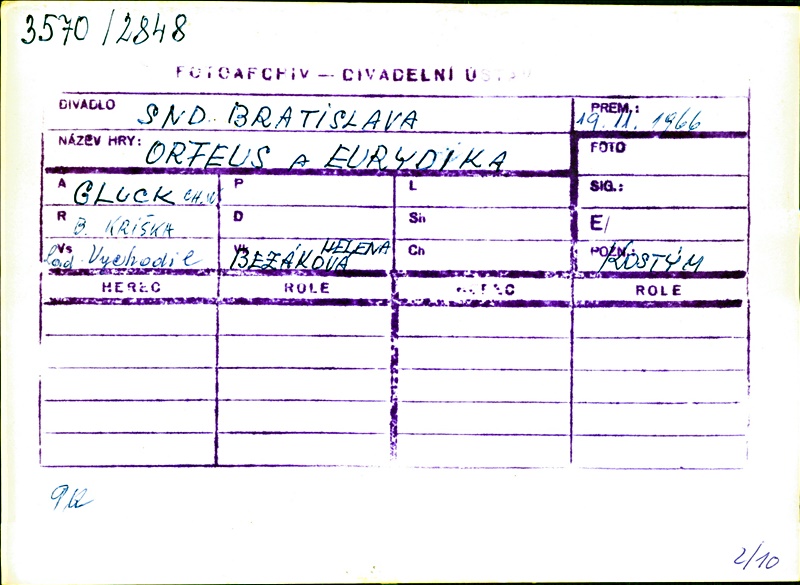 3570/2848
FOTOARCHIV — DIVADELNÍ ÚSTAV
DIVADLO SND. BRATISLAVA
PREM.: 19. 11. 1966
NÁZEV HRY: ORFEUS A EURYDIKA
FOTO
A GLUCK CH. W P L SIG.:
R B. KRIŠKA D Sh E/
Vs Lad. Vychodil Vk BEZÁKOVÁ HELENA Ch POZN.: KOSTÝM
HEREC ROLE HEREC ROLE
2/10